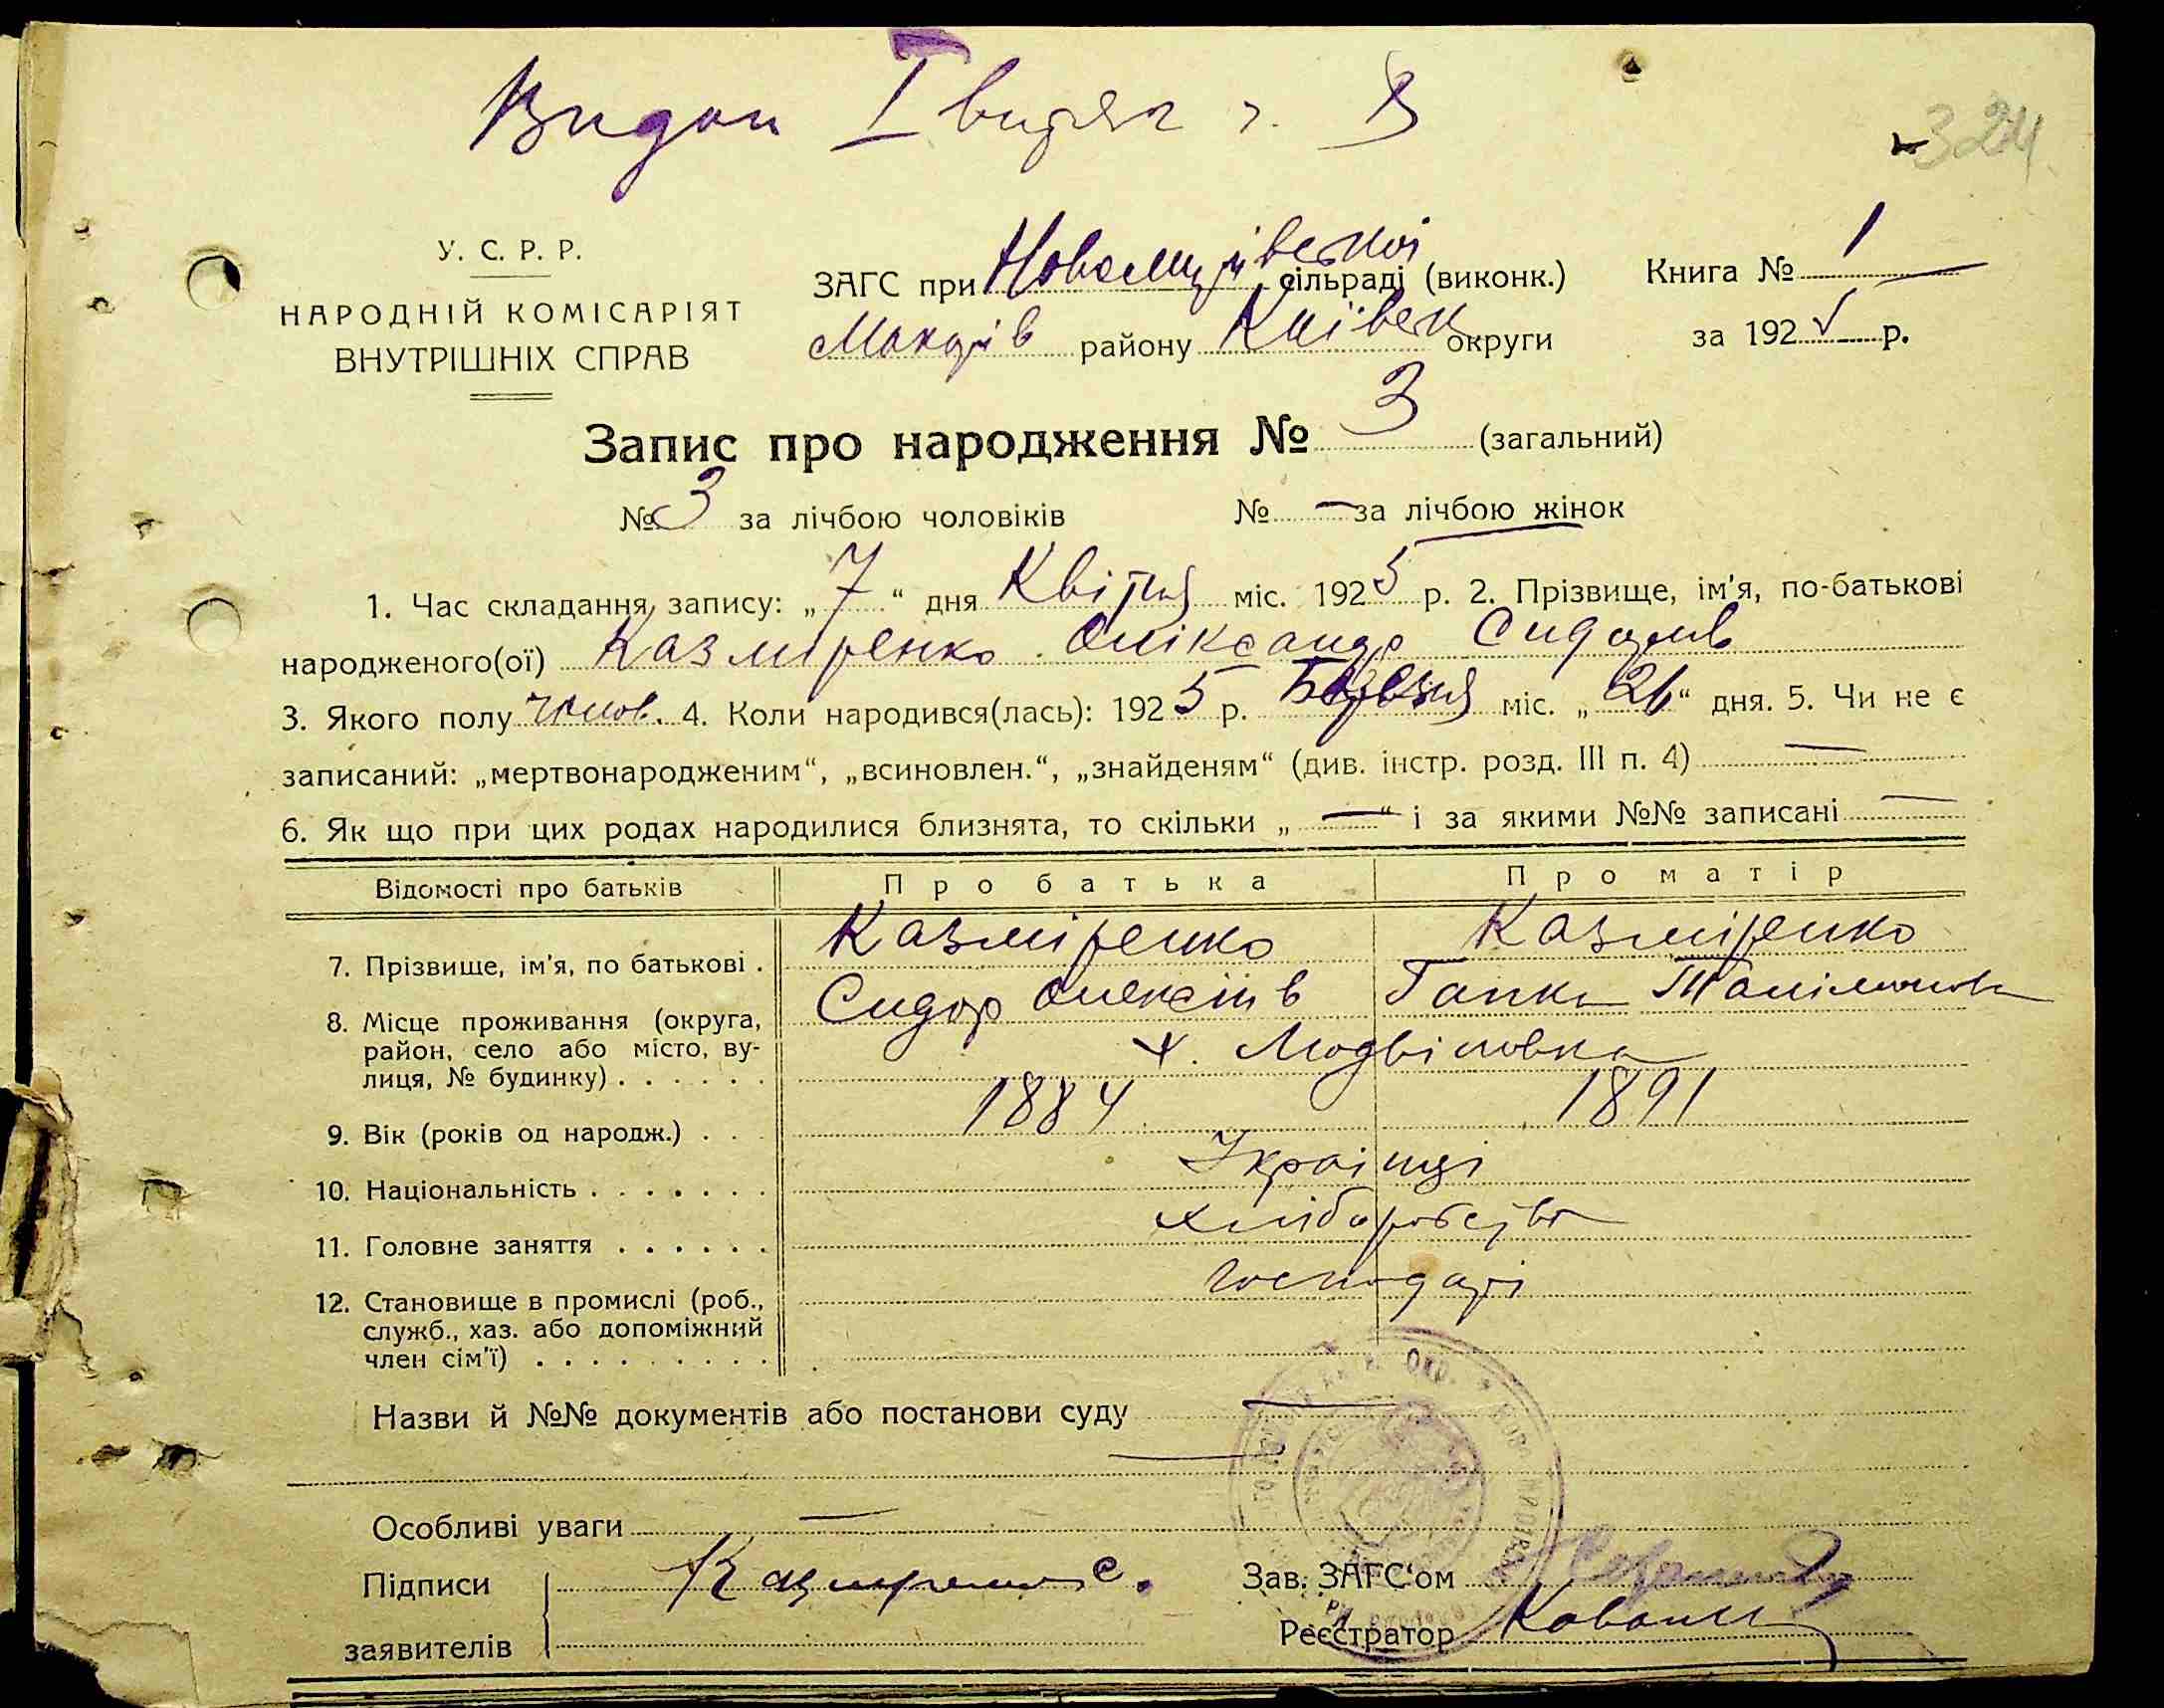 Видан I витяг
324
У. С. Р. Р.
НАРОДНІЙ КОМІСАРІЯТ
ВНУТРІШНІХ СПРАВ
ЗАГС при сільраді (виконк.)
Макарів району Київськ округи
Книга № 1
за 192 р.
Запис про народження № 3 (загальний)
№ 3 за лічбою чоловіків № — за лічбою жінок
1. Час складання запису: „7“ дня Квітня міс. 1925 р. 2. Прізвище, ім'я, по-батькові
народженого(ої) Казміренко Олександр Сидорів
3. Якого полу чолов. 4. Коли народився(лась): 1925 р. Березня міс. „26“ дня. 5. Чи не є
записаний: „мертвонародженим“, „всиновлен.“, „знайденям“ (див. інстр. розд. III п. 4) —
6. Як що при цих родах народилися близнята, то скільки „—“ і за якими №№ записані —
Відомості про батьків Про батька Про матір
7. Прізвище, ім'я, по батькові . Казміренко Казміренко
Сидор Олексіїв Гапка
8. Місце проживання (округа,
район, село або місто, ву-
лиця, № будинку) . . . . . . х.
9. Вік (років од народж.) . . . 1884 1891
10. Національність . . . . . . . Українці
11. Головне заняття . . . . . . хліборобство
12. Становище в промислі (роб.,
служб., хаз. або допоміжний
член сім'ї) . . . . . . . . . господарі
Назви й №№ документів або постанови суду —
Особливі уваги —
Підписи
заявителів
Казмиренко С.
Зав. ЗАГС'ом
Реєстратор